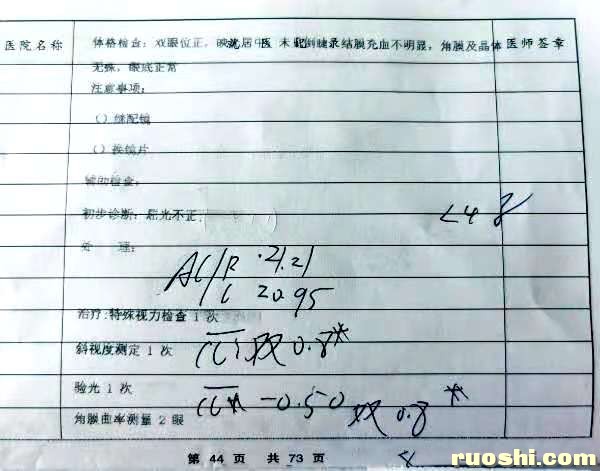 医院名称
体格检查：双眼位正，映光居中，未见倒睫，结膜充血不明显，角膜及晶体
医师签章
无殊，眼底正常
注意事项：
（）继配镜
（）换镜片
辅助检查：
初步诊断：屈光不正.
<4
处 理：
AC/R 21.21
/L 20.95
治疗:特殊视力检查 1 次
斜视度测定 1 次
双 0.8
验光 1 次
-0.50 双 0.8
角膜曲率测量 2 眼
第 44 页 共 73 页
ruoshi.com